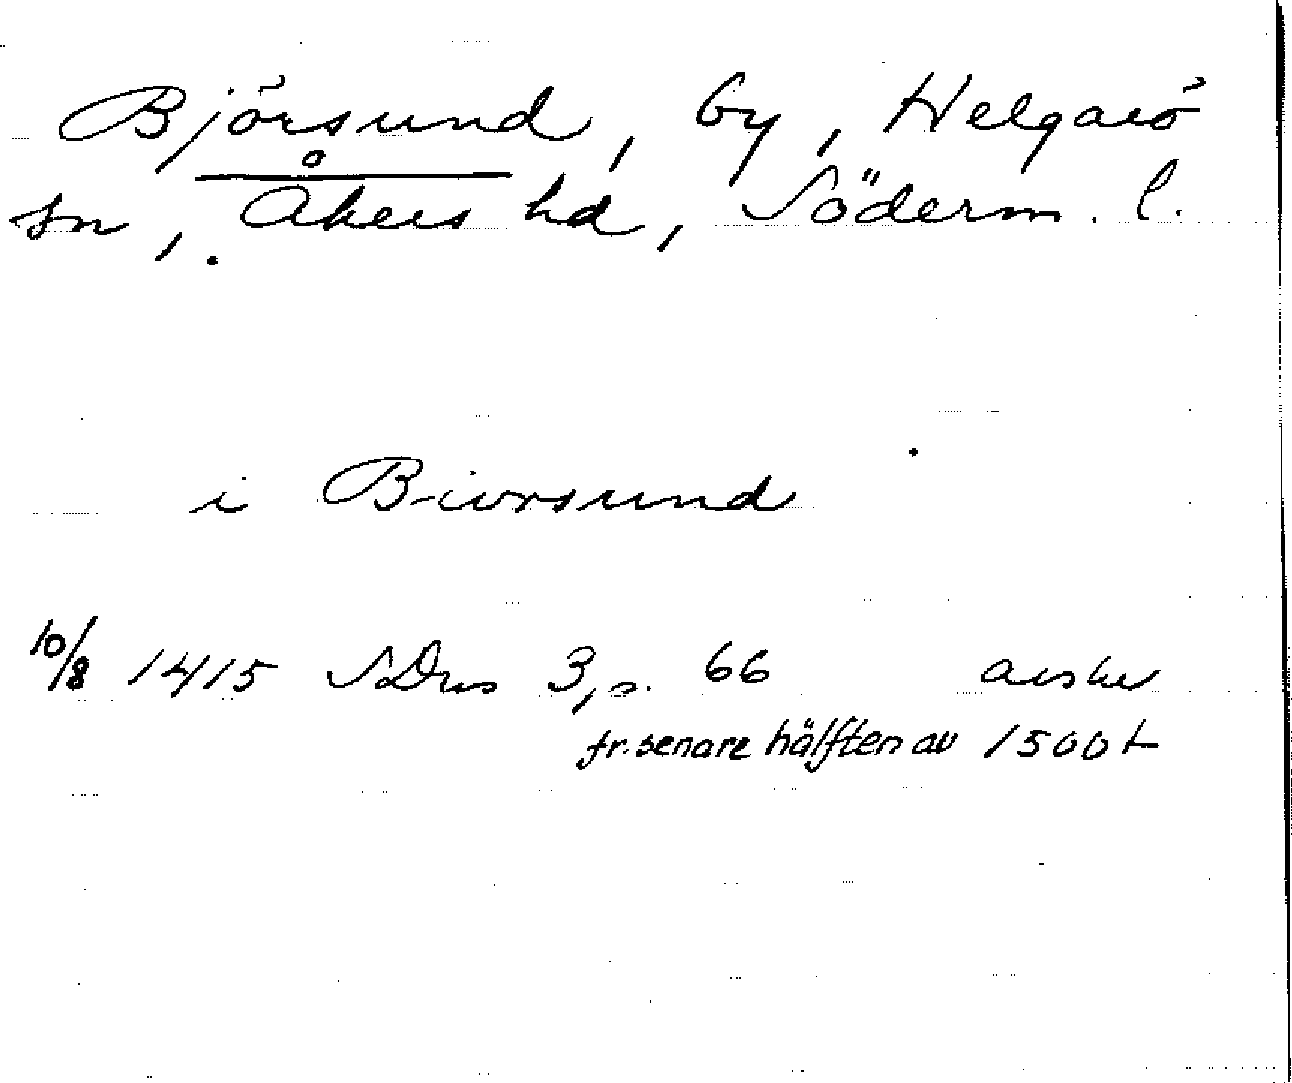 Björsund, by, Helgarö
sn, Åkers hd, Söderm. l.
i Biorsund
10/8 1415 SDns 3, s. 66 avskr
fr. senare hälften av 1500 t